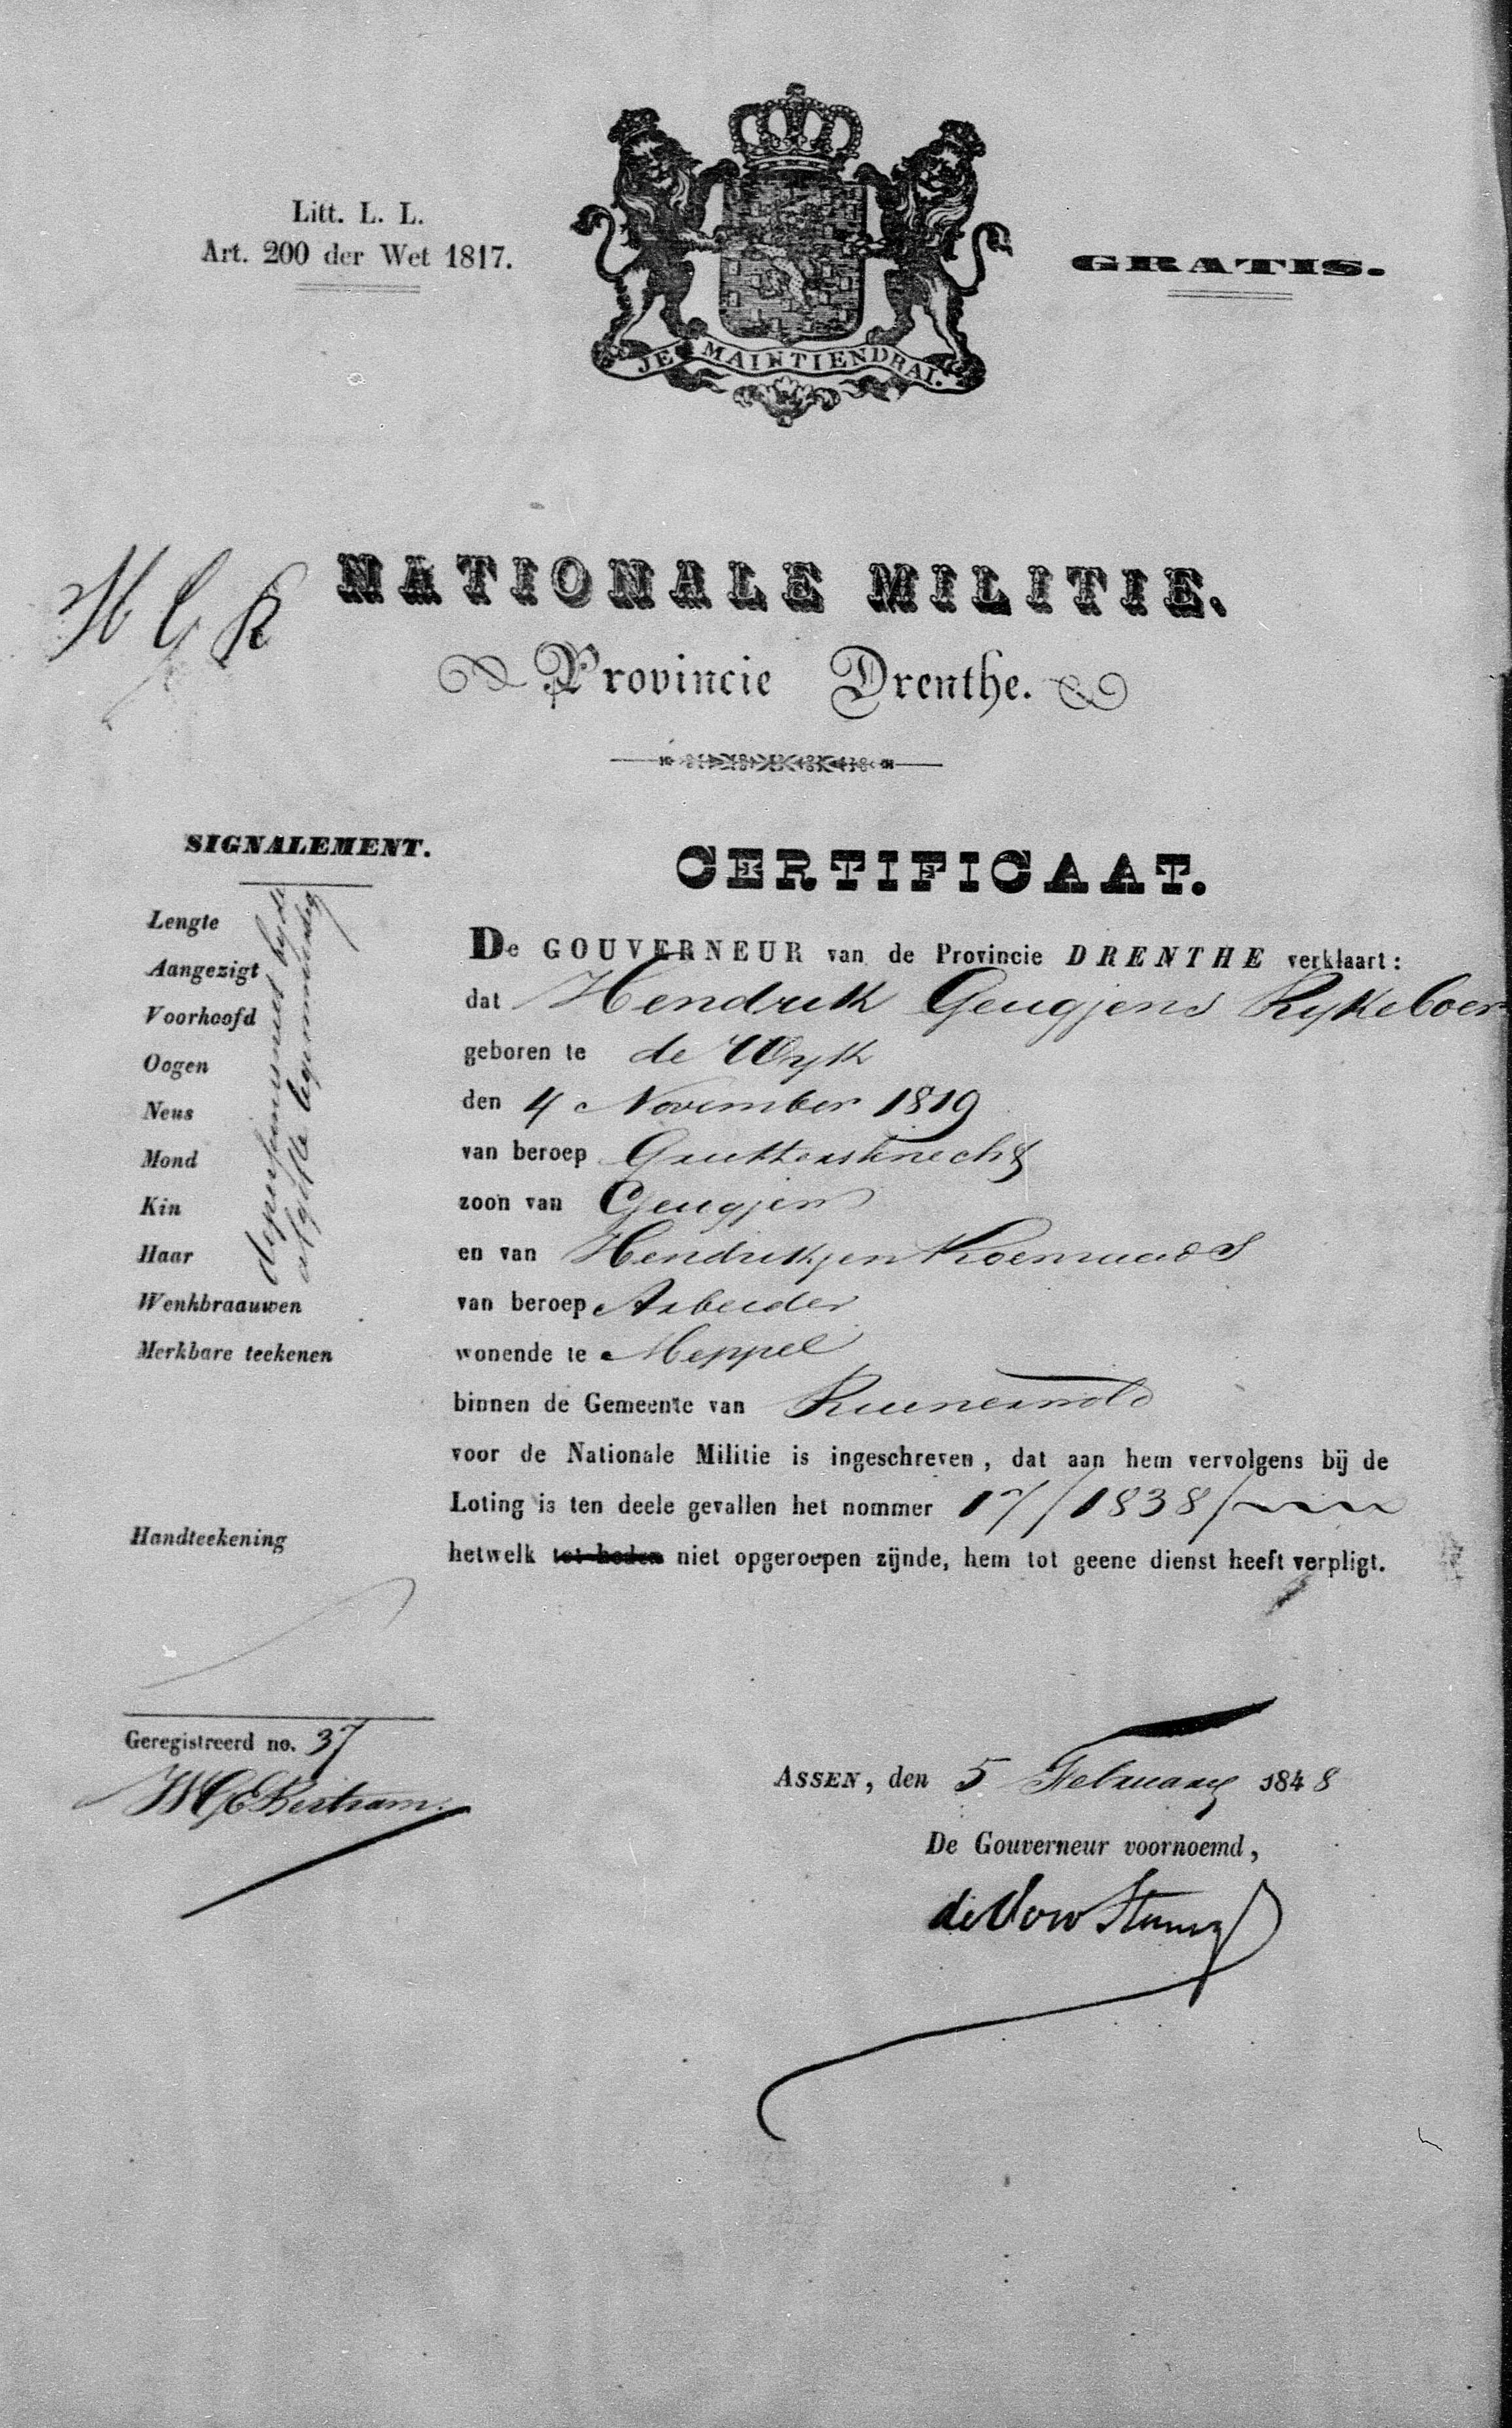 Litt. L. L.
Art. 200 der Wet 1817.
GRATIS.
JE MAINTIENDRAI.
H G R
NATIONALE MILITIE.
Provincie Drenthe.
SIGNALEMENT.
Lengte
Aangezigt
Voorhoofd
Oogen
Neus
Mond
Kin
Haar
Wenkbraauwen
Merkbare teekenen
Handteekening
Geregistreerd no. 37
CERTIFICAAT.
De GOUVERNEUR van de Provincie DRENTHE verklaart:
dat Hendrik Geugjens Rykeboer
geboren te de Wyk
den 4 November 1819
van beroep Gruttersknecht
zoon van Geugjen
en van Hendrikjen Koenraads
van beroep Arbeider
wonende te Meppel
binnen de Gemeente van Ruinerwold
voor de Nationale Militie is ingeschreven, dat aan hem vervolgens bij de
Loting is ten deele gevallen het nommer 17/1838/
hetwelk tot heden niet opgeroepen zijnde, hem tot geene dienst heeft verpligt.
ASSEN, den 5 February 1848
De Gouverneur voornoemd,